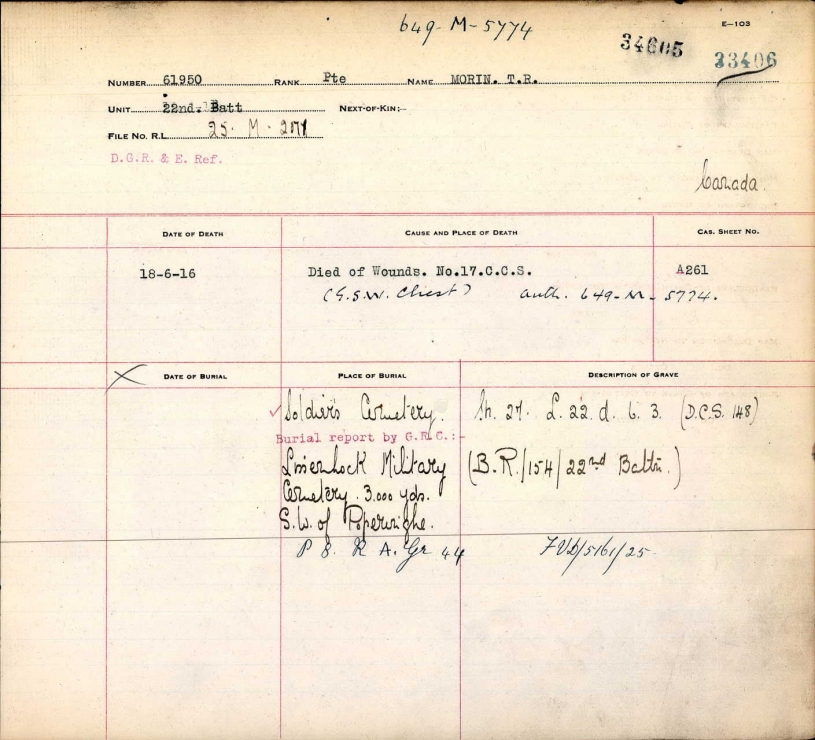 649-M-5774
E-103
34605
33406
NUMBER 61950 RANK Pte NAME MORIN. T.R.
UNIT 22nd. Batt NEXT-OF-KIN:-
FILE NO. R.L. 25. M.
D.G.R. & E. Ref.
Canada.
DATE OF DEATH CAUSE AND PLACE OF DEATH CAS. SHEET NO.
18-6-16 Died of Wounds. No.17.C.C.S. A261
(G.S.W. Chest) auth. 649-M-5774.
DATE OF BURIAL PLACE OF BURIAL DESCRIPTION OF GRAVE
Soldier's Cemetery. Sh. 27. L. 22. d. 6. 3. (D.C.S. 148)
Burial report by G.R.C.:-
Military (B.R./154/22nd Battn.)
Cemetery. 3.000 yds.
S.W. of Poperinghe.
P 8. R A. Gr 44